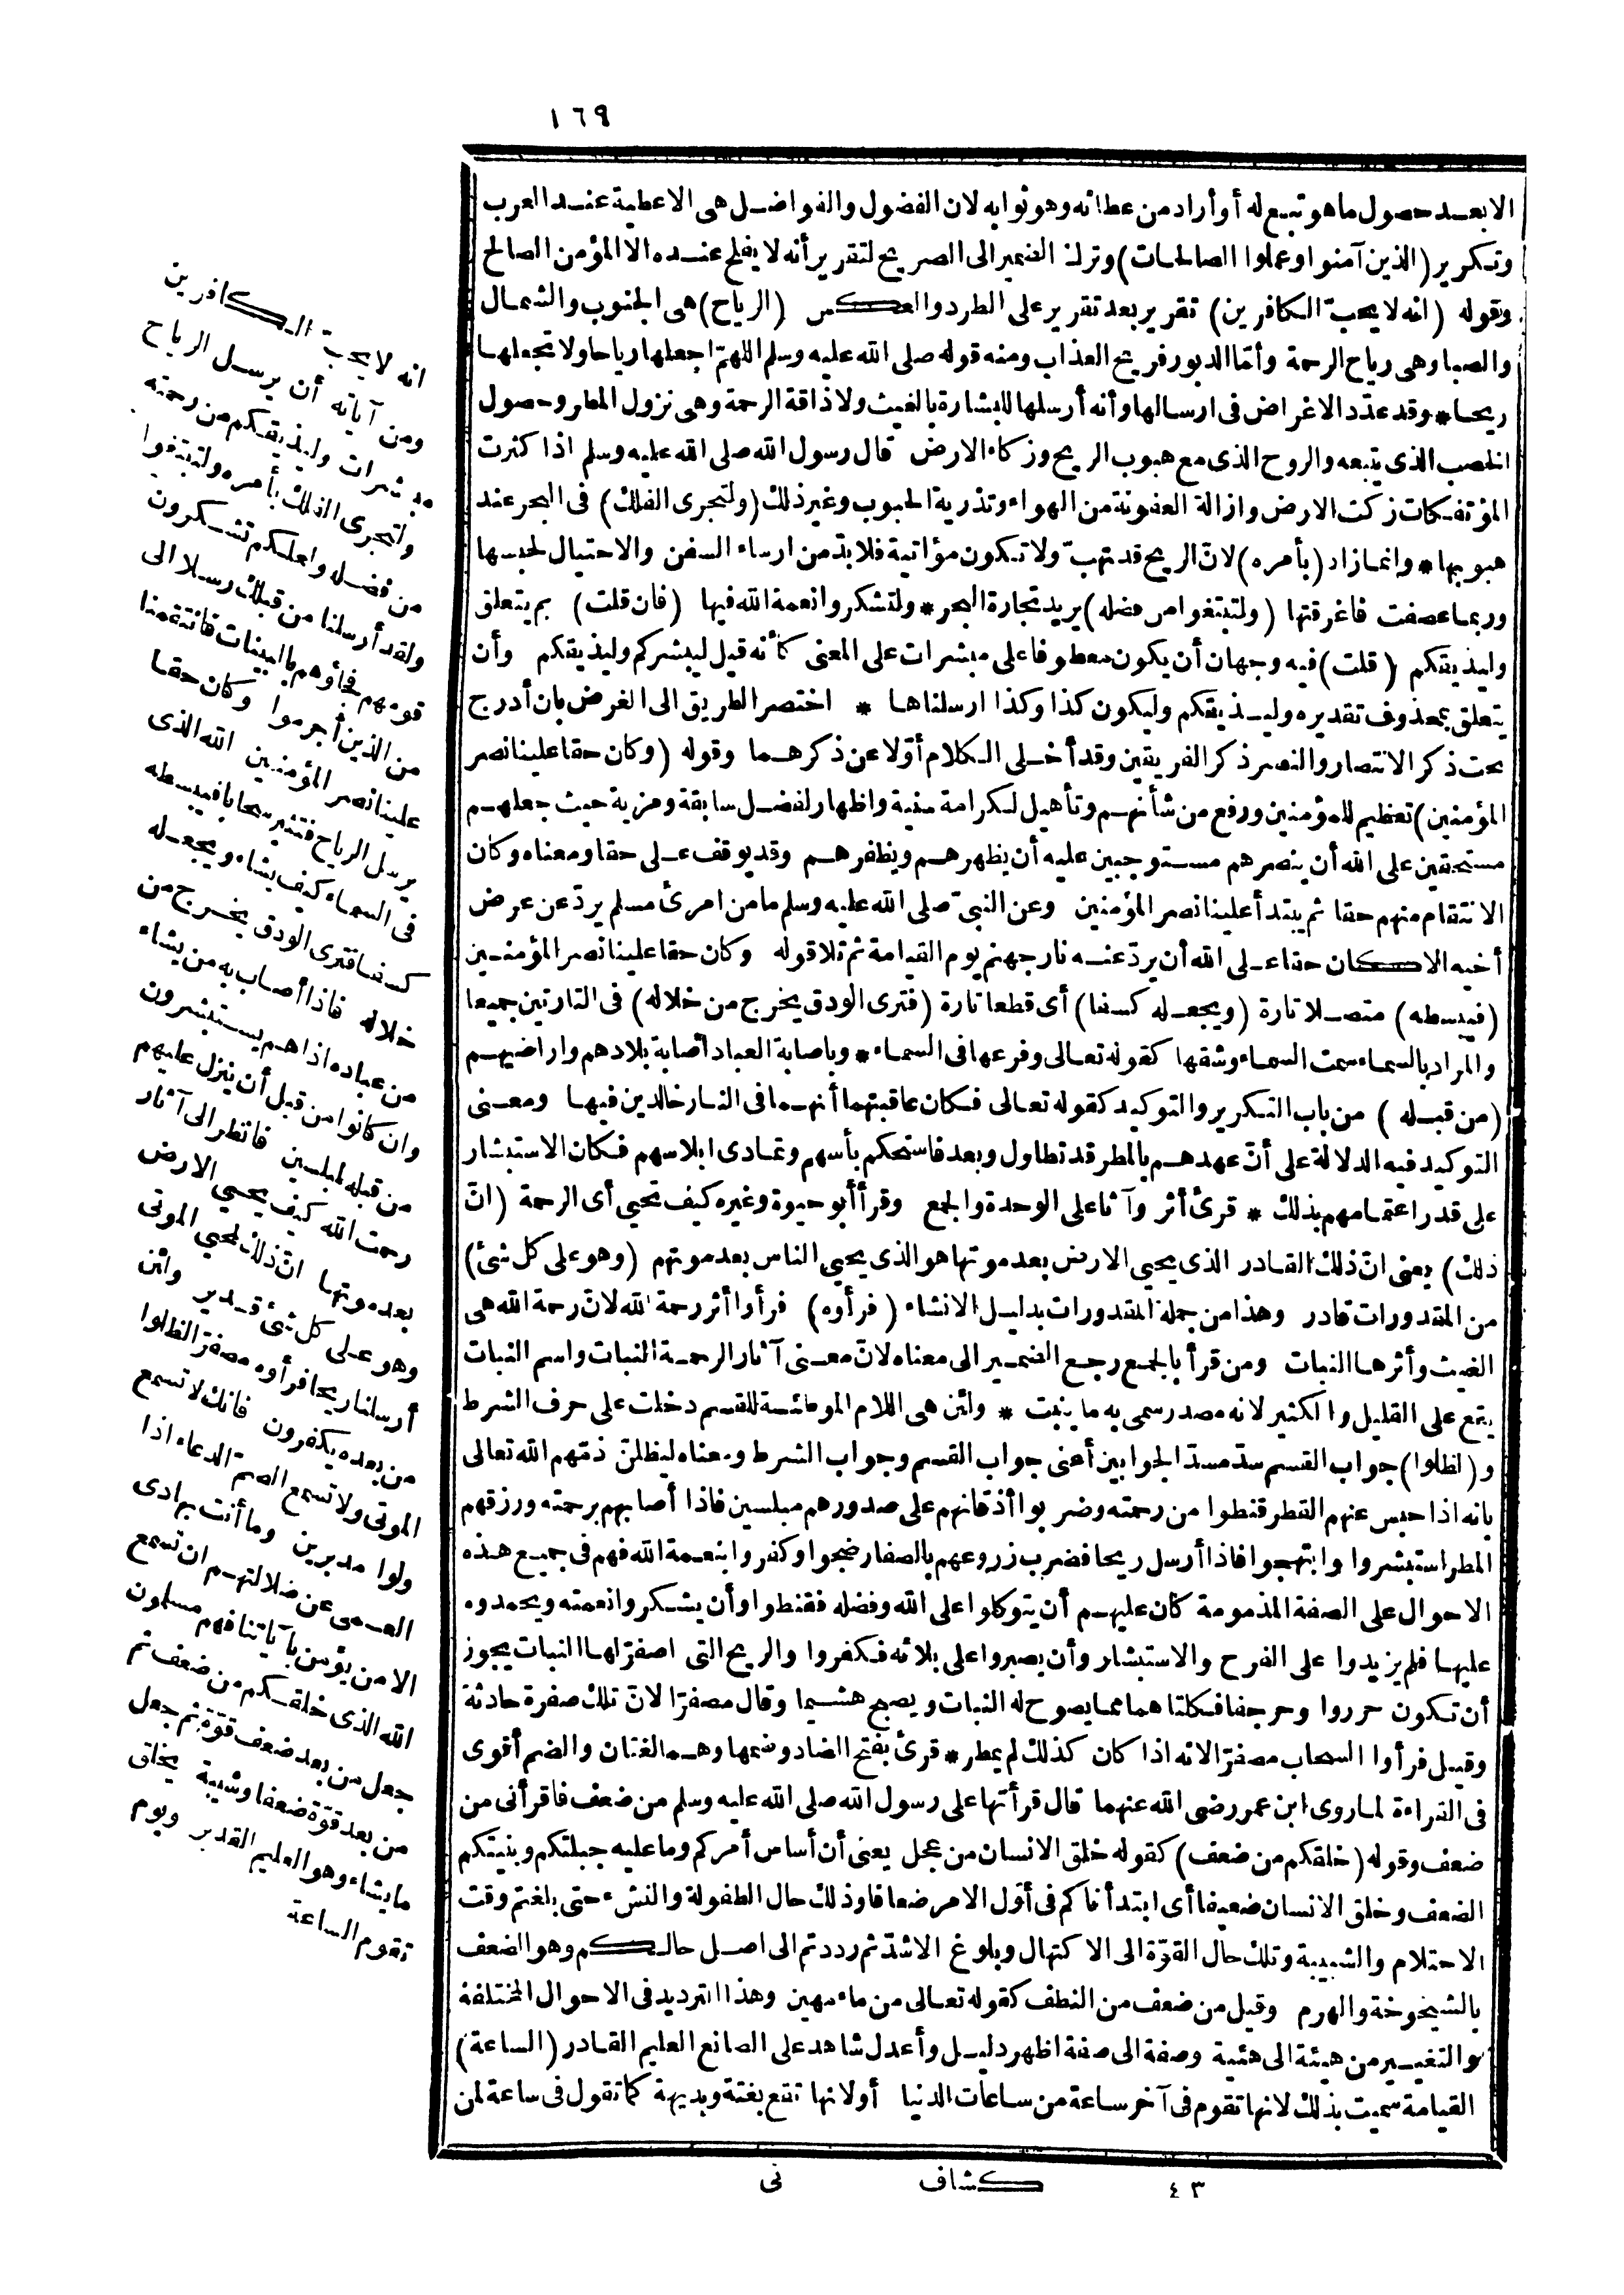 ١٦٩
الا بعد حصول ما هو تبع له أو أراد من عطائه وهو ثوابه لان الفضول والفواضل هى الاعطية عند العرب
وتكرير (الذين آمنوا وعملوا الصالحات) وترك الضمير الى الصريح لتقرير أنه لا يفلح عنده الا المؤمن الصالح
وقوله (انه لا يحبّ الكافرين) تقرير بعد تقرير على الطرد والعكس (الرياح) هى الجنوب والشمال
والصبا وهى رياح الرحمة وأمّا الدبور فريح العذاب ومنه قوله صلى الله عليه وسلم اللهمّ اجعلها رياحا ولا تجعلها
ريحا * وقد عدّد الاغراض فى ارسالها وأنه أرسلها للبشارة بالغيث ولاذاقة الرحمة وهى نزول المطر وحصول
الخصب الذى يتبعه والروح الذى مع هبوب الريح وزكاء الارض قال رسول الله صلى الله عليه وسلم اذا كثرت
المؤتفكات زكت الارض وازالة العفونة من الهواء وتذرية الحبوب وغير ذلك (ولتجرى الفلك) فى البحر عند
هبوبها * وانما زاد (بأمره) لانّ الريح قد تهبّ ولا تكون مؤاتية فلا بدّ من ارساء السفن والاحتيال لحبسها
وربما عصفت فاغرقتها (ولتبتغوا من فضله) يريد تجارة البحر * ولتشكروا نعمة الله فيها (فان قلت) بم يتعلق
وليذيقكم (قلت) فيه وجهان أن يكون معطوفا على مبشرات على المعنى كأنه قيل ليبشركم وليذيقكم وأن
يتعلق بمحذوف تقديره وليذيقكم وليكون كذا وكذا ارسلناها * اختصر الطريق الى الغرض بان أدرج
تحت ذكر الانتصار والنصر ذكر الفريقين وقد أخلى الكلام أوّلا عن ذكرهما وقوله (وكان حقا علينا نصر
المؤمنين) تعظيم للمؤمنين ورفع من شأنهم وتأهيل لكرامة سنية واظهار لفضل سابقة ومزية حيث جعلهم
مستحقين على الله أن ينصرهم مستوجبين عليه أن يظهرهم ويظفرهم وقد يوقف على حقا ومعناه وكان
الانتقام منهم حقا ثم يبتدأ علينا نصر المؤمنين وعن النبىّ صلى الله عليه وسلم ما من امرئ مسلم يردّ عن عرض
أخيه الا كان حقا على الله أن يردّ عنه نار جهنم يوم القيامة ثم تلا قوله وكان حقا علينا نصر المؤمنين
(فيبسطه) متصلا تارة (ويجعله كسفا) أى قطعا تارة (فترى الودق يخرج من خلاله) فى التارتين جميعا
والمراد بالسماء سمت السماء وشقها كقوله تعالى وفرعها فى السماء * وباصابة العباد اصابة بلادهم واراضيهم
(من قبله) من باب التكرير والتوكيد كقوله تعالى فكان عاقبتهما أنهما فى النار خالدين فيها ومعنى
التوكيد فيه الدلالة على أنّ عهدهم بالمطر قد تطاول وبعد فاستحكم بأسهم وتمادى ابلاسهم فكان الاستبشار
على قدر اغتمامهم بذلك * قرئ أثر وآثا على الوحدة والجمع وقرأ أبو حيوة وغيره كيف تحيي أى الرحمة (انّ
ذلك) يعنى انّ ذلك القادر الذى يحيي الارض بعد موتها هو الذى يحيي الناس بعد موتهم (وهو على كل شئ)
من المقدورات قادر وهذا من جملة المقدورات بدليل الانشاء (فرأوه) فرأوا أثر رحمة الله لانّ رحمة الله هى
الغيث وأثرها النبات ومن قرأ بالجمع رجع الضمير الى معناه لانّ معنى آثار الرحمة النبات واسم النبات
يقع على القليل والكثير لانه مصدر سمى به ما ينبت * ولئن هى اللام الموطئة للقسم دخلت على حرف الشرط
و(لظلوا) جواب القسم سدّ مسدّ الجوابين أعنى جواب القسم وجواب الشرط ومعناه ليظلنّ ذمّهم الله تعالى
بانه اذا حبس عنهم القطر قنطوا من رحمته وضربوا أذقانهم على صدورهم مبلسين فاذا أصابهم برحمته ورزقهم
المطر استبشروا وابتهجوا فاذا أرسل ريحا فضرب زروعهم بالصفار ضجوا وكفروا بنعمة الله فهم فى جميع هذه
الاحوال على الصفة المذمومة كان عليهم أن يتوكلوا على الله وفضله فقنطوا وأن يشكروا نعمته ويحمدوه
عليها فلم يزيدوا على الفرح والاستبشار وأن يصبروا على بلائه فكفروا والريح التى اصفرّ لها النبات يجوز
أن تكون حرورا وحرجفا فكلتاهما مما يصوح له النبات ويصبح هشيما وقال مصفرّا لانّ تلك صفرة حادثة
وقيل فرأوا السحاب مصفرّا لانه اذا كان كذلك لم يمطر * قرئ بفتح الضاد وضمها وهما لغتان والضم أقوى
فى القراءة لما روى ابن عمر رضى الله عنهما قال قرأتها على رسول الله صلى الله عليه وسلم من ضعف فاقرأنى من
ضعف وقوله (خلقكم من ضعف) كقوله خلق الانسان من عجل يعنى أن أساس أمركم وما عليه جبلتكم وبنيتكم
الضعف وخلق الانسان ضعيفا أى ابتدأناكم فى أوّل الامر ضعافا وذلك حال الطفولة والنشء حتى بلغتم وقت
الاحتلام والشبيبة وتلك حال القوّة الى الاكتهال وبلوغ الاشدّ ثم رددتم الى اصل حالكم وهو الضعف
بالشيخوخة والهرم وقيل من ضعف من النطف كقوله تعالى من ماء مهين وهذا الترديد فى الاحوال المختلفة
والتغيير من هيئة الى هيئة وصفة الى صفة اظهر دليل وأعدل شاهد على الصانع العليم القادر (الساعة)
القيامة سميت بذلك لانها تقوم فى آخر ساعة من ساعات الدنيا أولانها تقع بغتة وبديهة كما تقول فى ساعة لمن
انه لا يحبّ الكافرين
ومن آياته أن يرسل الرياح
مبشرات وليذيقكم من رحمته
ولتجرى الفلك بأمره ولتبتغوا
من فضله ولعلكم تشكرون
ولقد أرسلنا من قبلك رسلا الى
قومهم فجاؤهم بالبينات فانتقمنا
من الذين أجرموا وكان حقا
علينا نصر المؤمنين الله الذى
يرسل الرياح فتثير سحابا فيبسطه
فى السماء كيف يشاء ويجعله
كسفا فترى الودق يخرج من
خلاله فاذا أصاب به من يشاء
من عباده اذا هم يستبشرون
وان كانوا من قبل أن ينزل عليهم
من قبله لمبلسين فانظر الى آثار
رحمت الله كيف يحيي الارض
بعد موتها انّ ذلك لمحيي الموتى
وهو على كل شئ قدير ولئن
أرسلنا ريحا فرأوه مصفرّا لظلوا
من بعده يكفرون فانك لا تسمع
الموتى ولا تسمع الصمّ الدعاء اذا
ولوا مدبرين وما أنت بهادى
العمى عن ضلالتهم ان تسمع
الا من يؤمن بآياتنا فهم مسلمون
الله الذى خلقكم من ضعف ثم
جعل من بعد ضعف قوّة ثم جعل
من بعد قوّة ضعفا وشيبة يخلق
ما يشاء وهو العليم القدير ويوم
تقوم الساعة
٤٣ كشاف نى